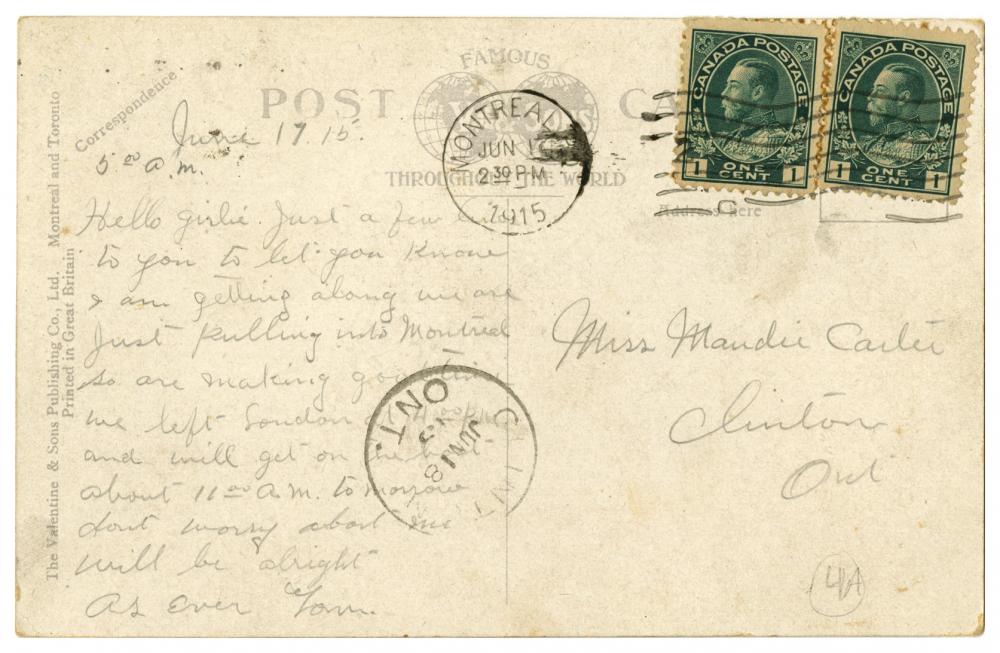 The Valentine & Sons Publishing Co., Ltd. Montreal and Toronto
Printed in Great Britain
Correspondence
FAMOUS
POST CARD
THROUGHOUT THE WORLD
MONTREAL
JUN
2 30 PM
1915
CANADA POSTAGE
1 ONE CENT 1
CANADA POSTAGE
1 ONE CENT 1
Address here
June 17 15.
5 00 a.m.
Hello girlie. Just a few lines
to you to let you know
I am getting along we are
Just pulling into Montreal
so are making good time
we left London at
and will get on the boat
about 11 00 A.M. tomorrow
dont worry about me
will be alright
As Ever Tom.
Miss Maudie Carter
Clinton
Ont
CLINTON
ONT.
JUN 18
15
4A